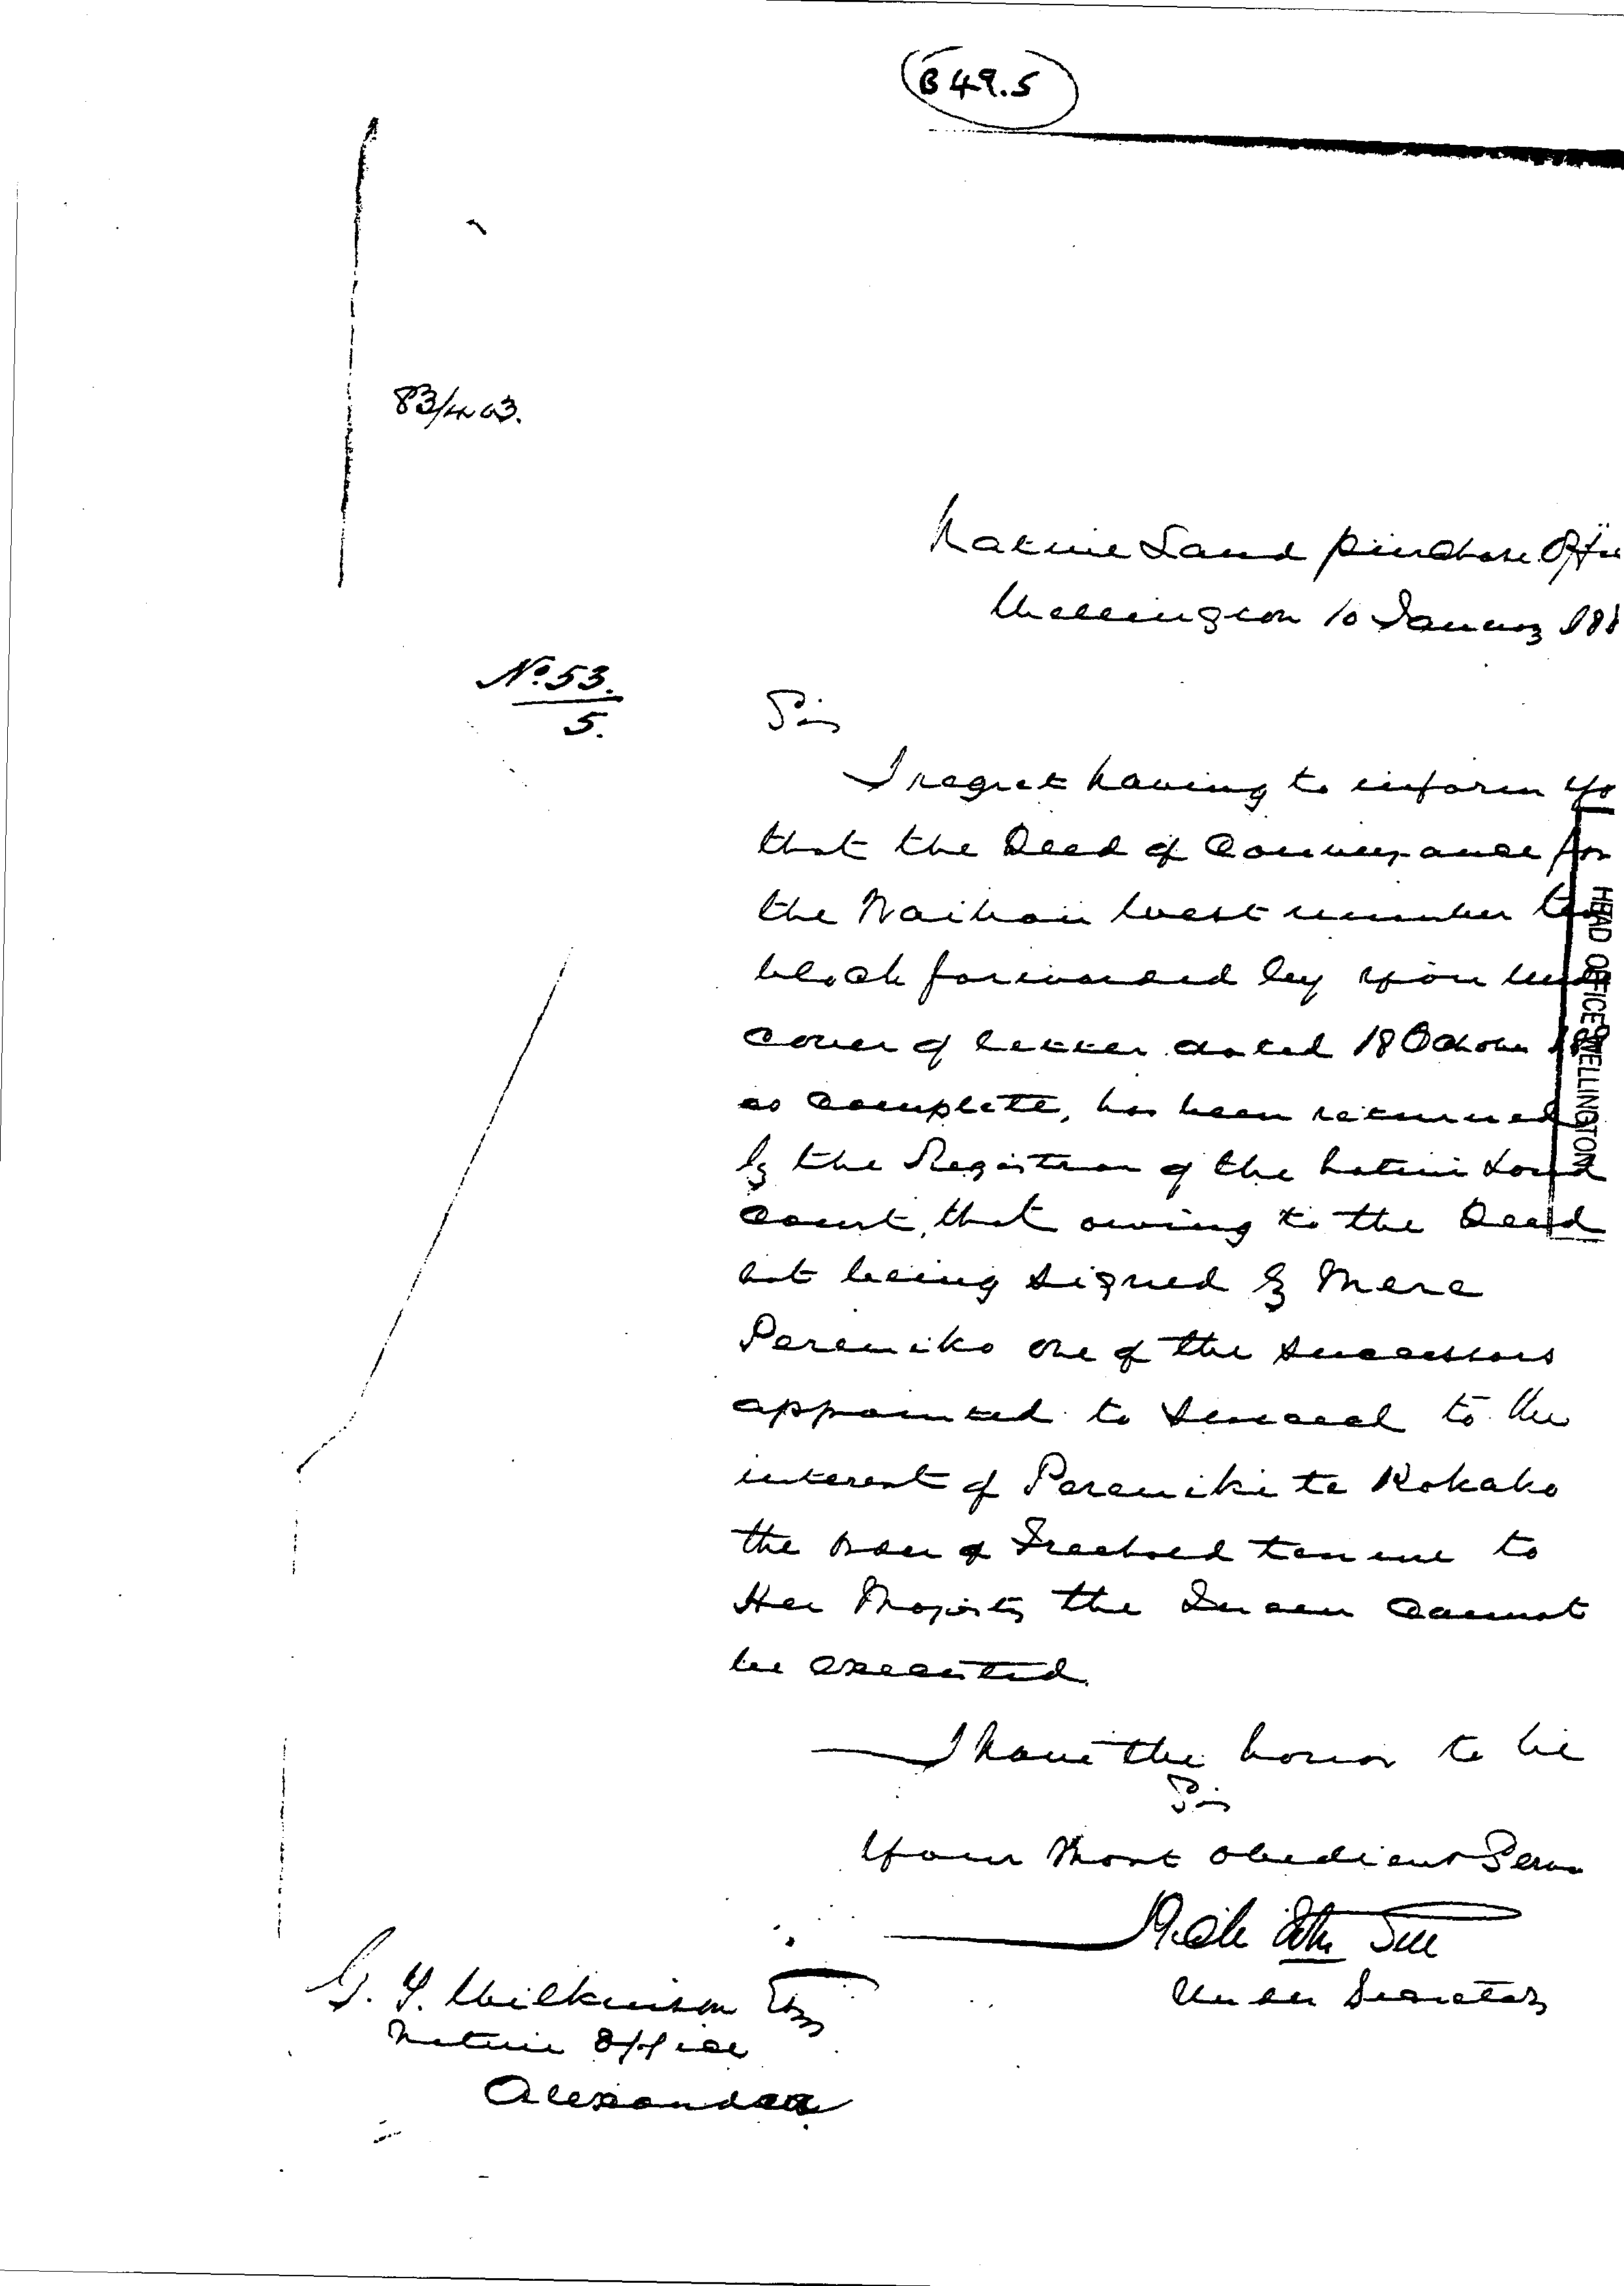 B 49.5
83/403.
Native Land purchase Office
Wellington 10 January 188
No. 53.
5.
Sir
I regret having to inform yo
that the Deed of Conveyance for
the Waihou West number te
block forwarded by you und
cover of letter dated 18 October 188
as complete, has been returned
by the Registrar of the Native Land
Court, that owing to the Deed
not being signed by Mere
Pereniko one of the successors
appointed to succeed to the
interest of Pereniki te Kokako
the order of Freehold tenure to
Her Majesty the Queen cannot
be executed.
I have the honor to be
Sir
Your Most obedient Serv
Under Secretary
G. T. Wilkinson Esq
Native Office
Alexandra
HEAD OFFICE WELLINGTON